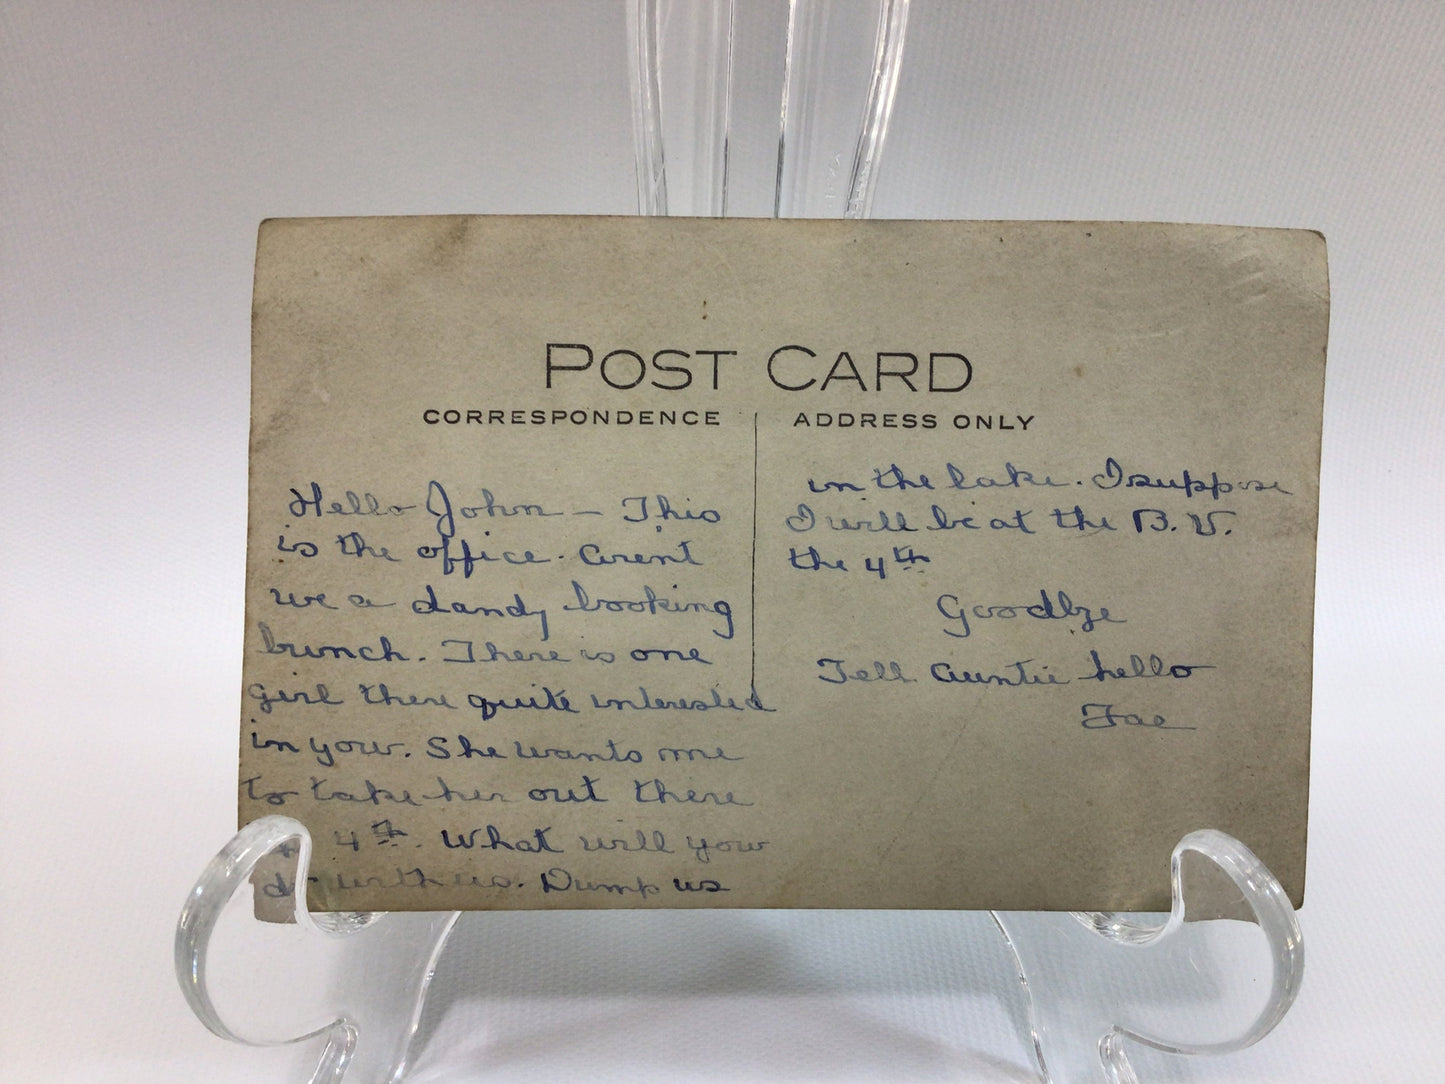 POST CARD
CORRESPONDENCE
ADDRESS ONLY
Hello John – This
is the office. Arent
we a dandy looking
bunch. There is one
girl there quite interested
in your. She wants me
to take her out there
4th. What will your
do with us. Dump us
in the lake. I suppose
I will be at the B. V.
the 4th
Goodbye
Tell Auntie hello
Fae